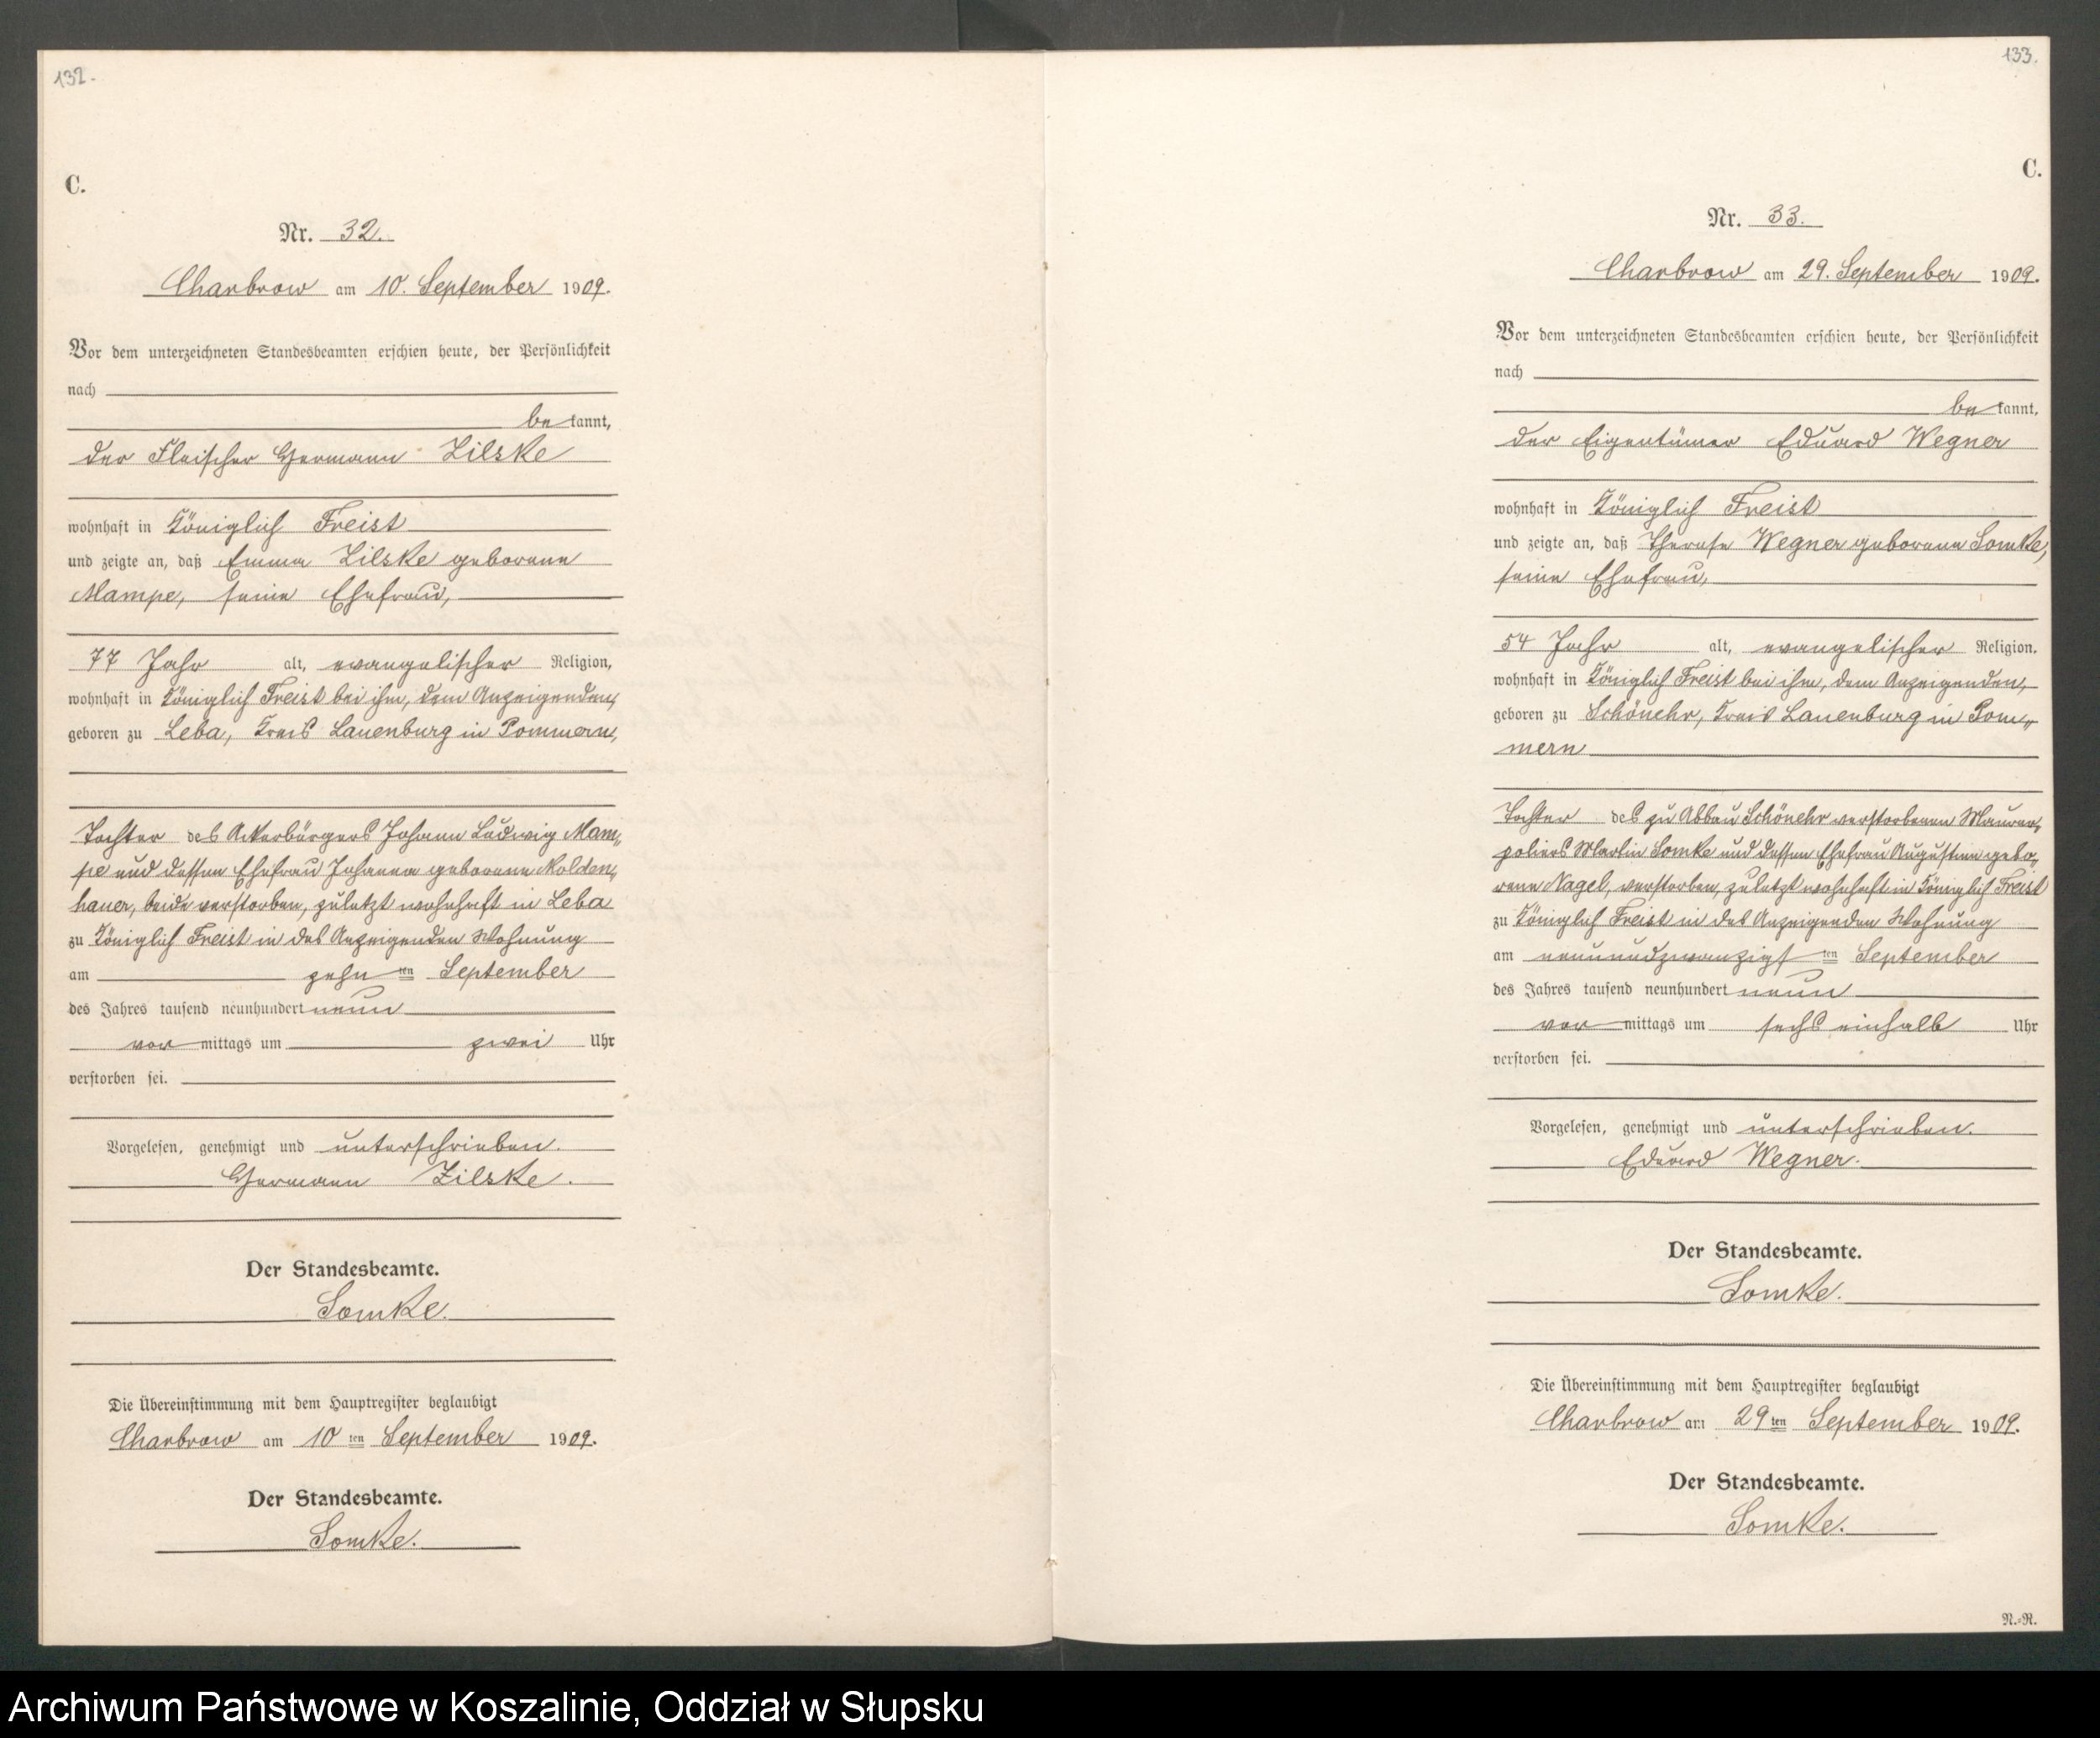 132.
C.
Nr. 32.
Charbrow am 10. September 1909.
Vor dem unterzeichneten Standesbeamten erschien heute, der Persönlichkeit
nach
be kannt,
der Fleischer Hermann Zilske
wohnhaft in Königlich Freist
und zeigte an, daß Emma Zilske geborene
Mampe, seine Ehefrau,
77 Jahr alt, evangelischer Religion,
wohnhaft in Königlich Freist bei ihm, dem Anzeigenden,
geboren zu Leba, Kreis Lauenburg in Pommern,
Tochter des Ackerbürgers Johann Ludwig Mam„
pe und dessen Ehefrau Johanna geborene Molden„
hauer, beide verstorben, zuletzt wohnhaft in Leba
zu Königlich Freist in des Anzeigenden Wohnung
am zehn ten September
des Jahres tausend neunhundert neun
vor mittags um zwei Uhr
verstorben sei.
Vorgelesen, genehmigt und unterschrieben.
Hermann Zilske.
Der Standesbeamte.
Somke.
Die Übereinstimmung mit dem Hauptregister beglaubigt
Charbrow am 10 ten September 1909.
Der Standesbeamte.
Somke.
133.
C.
Nr. 33.
Charbrow am 29. September 1909.
Vor dem unterzeichneten Standesbeamten erschien heute, der Persönlichkeit
nach
be kannt,
der Eigentümer Eduard Wegner
wohnhaft in Königlich Freist
und zeigte an, daß Therese Wegner geborene Somke,
seine Ehefrau,
54 Jahr alt, evangelischer Religion,
wohnhaft in Königlich Freist bei ihm, dem Anzeigenden,
geboren zu Schönehr, Kreis Lauenburg in Pom„
mern
Tochter des zu Abbau Schönehr verstorbenen Maurer„
poliers Martin Somke und dessen Ehefrau Augustine gebo„
rene Nagel, verstorben, zuletzt wohnhaft in Königlich Freist
zu Königlich Freist in des Anzeigenden Wohnung
am neunundzwanzigs ten September
des Jahres tausend neunhundert neun
vor mittags um sechs einhalb Uhr
verstorben sei.
Vorgelesen, genehmigt und unterschrieben.
Eduard Wegner.
Der Standesbeamte.
Somke.
Die Übereinstimmung mit dem Hauptregister beglaubigt
Charbrow am 29 ten September 1909.
Der Standesbeamte.
Somke.
N.=R.
Archiwum Państwowe w Koszalinie, Oddział w Słupsku